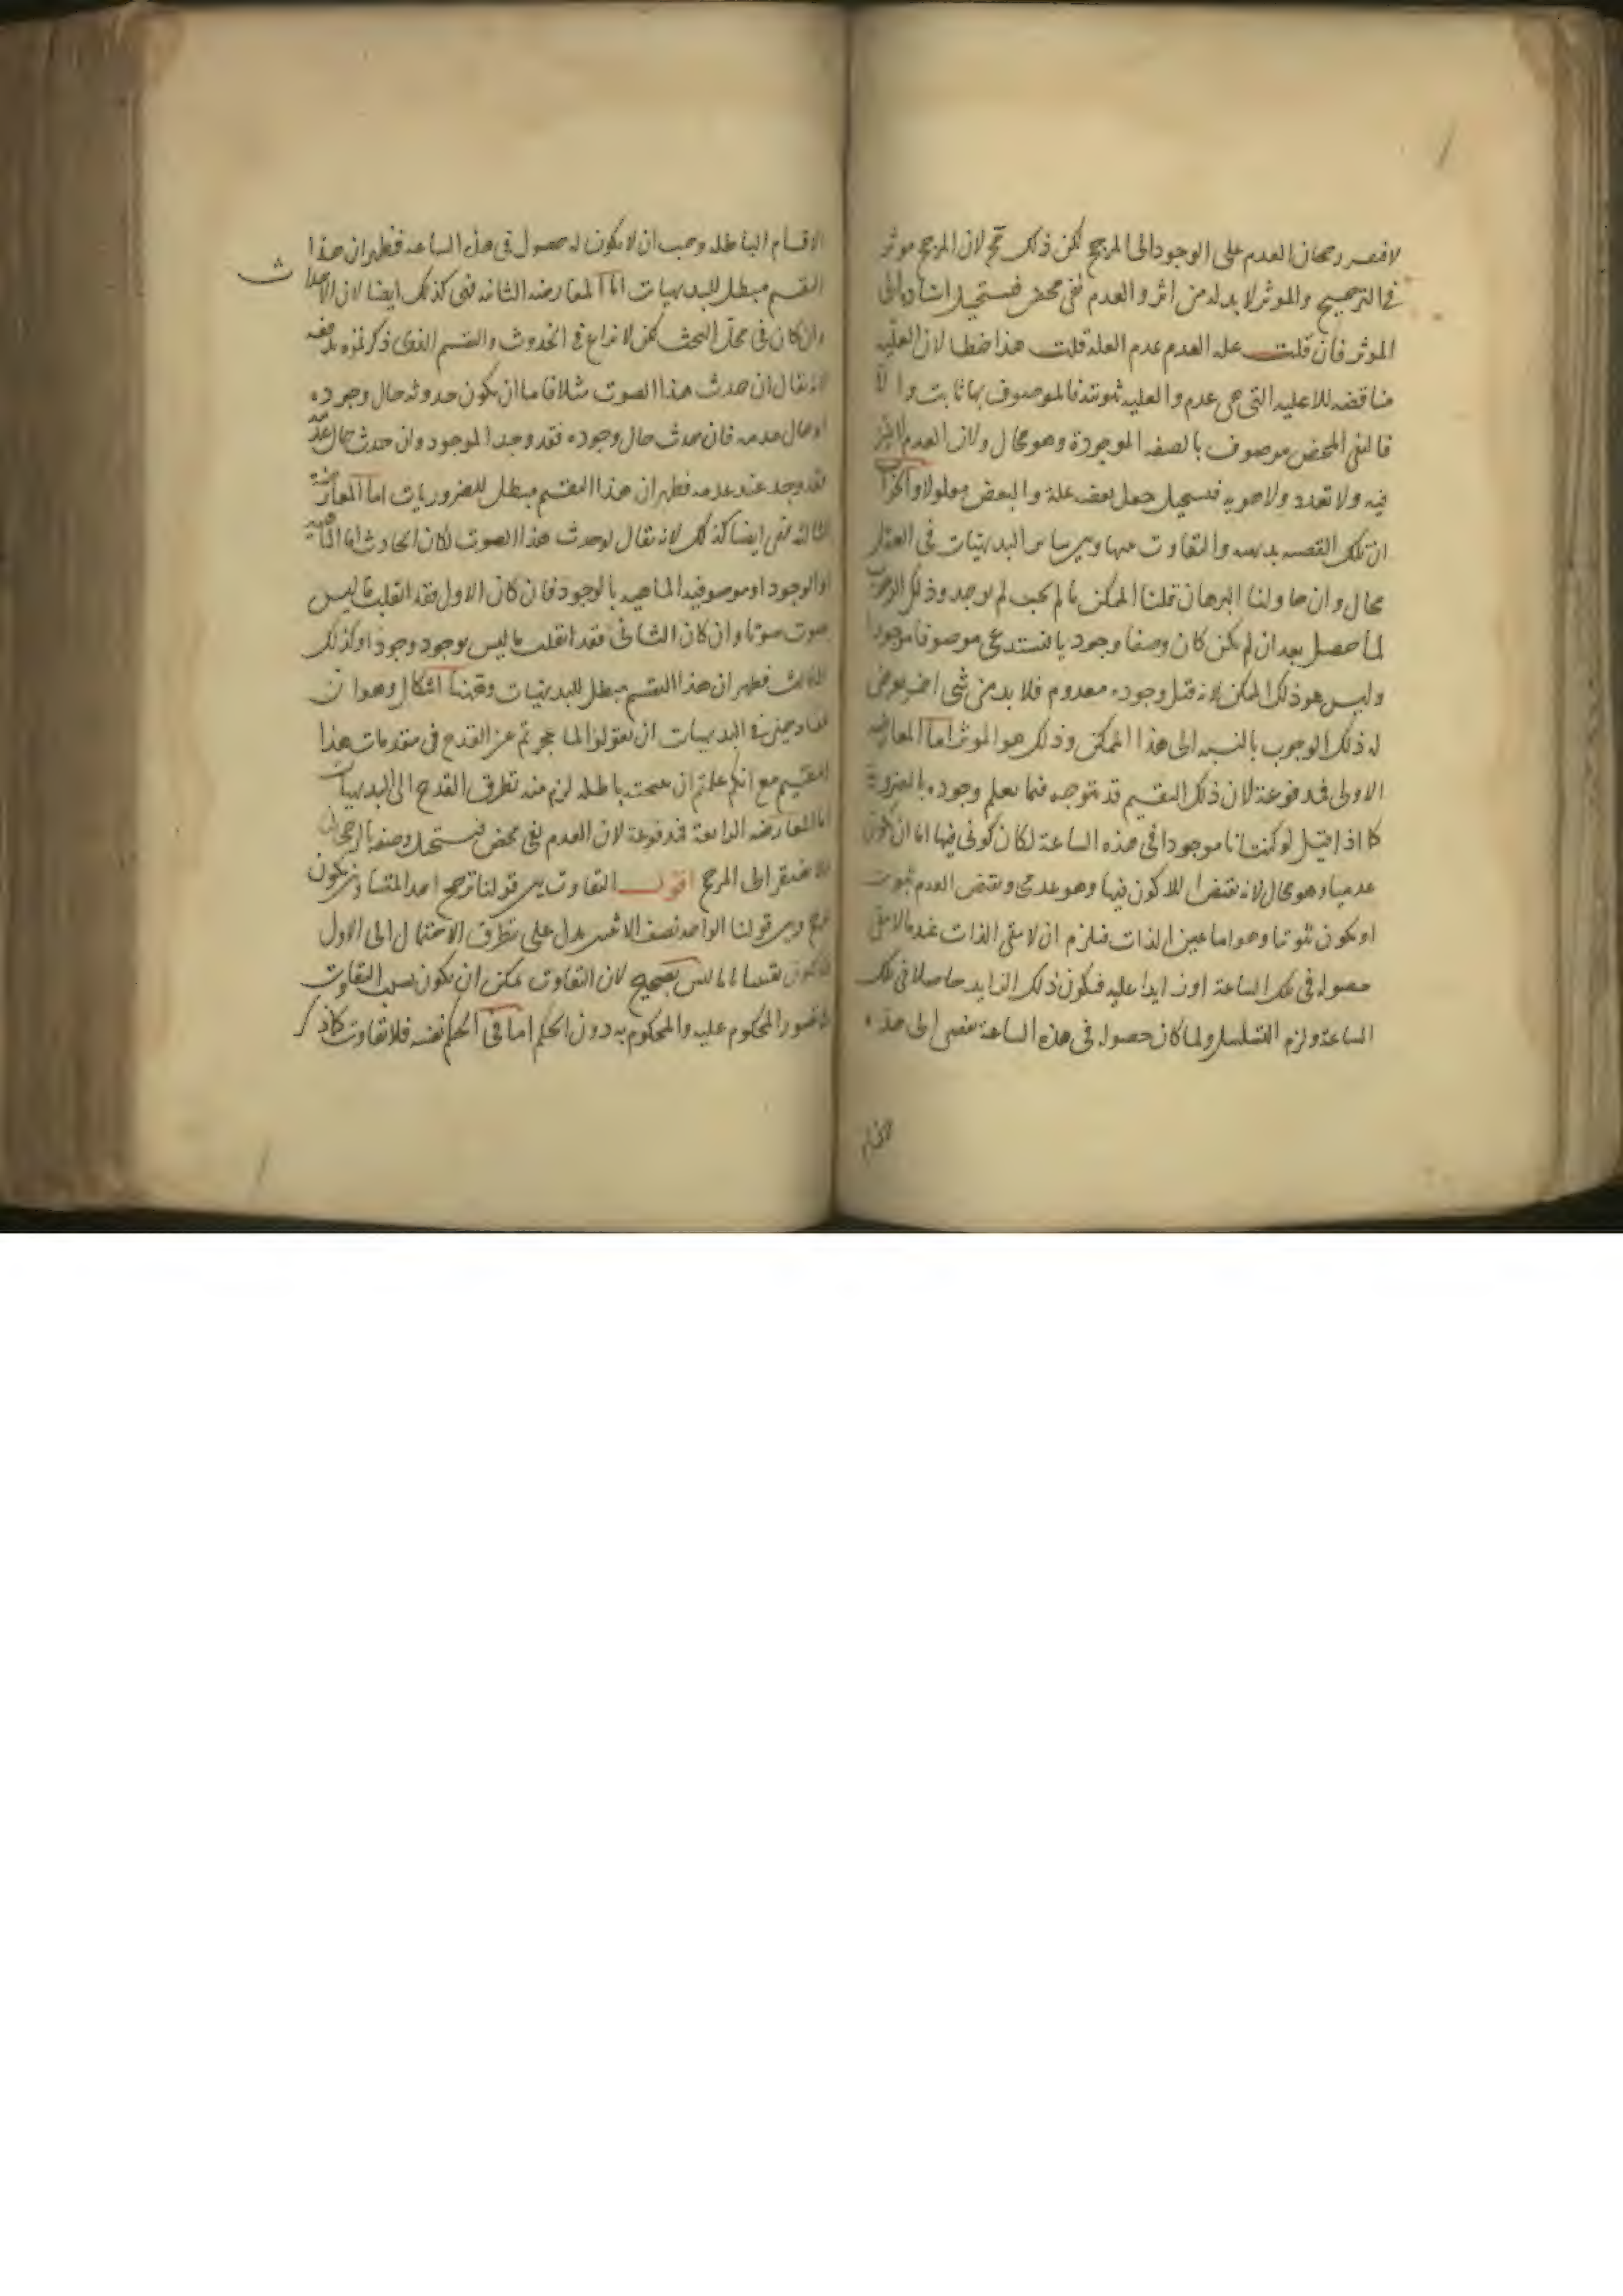 لافتقر رجحان العدم على الوجود الى المرجح لكن ذلك مح لان المرجح موثر
فى الترجيح والموثر لا بد له من اثر والعدم نفى محض فيستحيل اسناده الى
الموثر فان قلت علة العدم عدم العله قلت هذا خطا لان العليه
مناقضه للاعليه التى هى عدم والعليه ثبوتيه فالموصوف بها ثابت والا
فالنفى المحض موصوف بالصفه الموجودة وهو محال ولان العدم لا تميز
فيه ولا تعدد ولا هويه فيستحيل جعل بعضه علة والبعض معلولا والجواب
ان تلك القضيه بديهيه والتفاوت بينها وبين ساير البديهيات فى العقل
محال وان حاولنا البرهان قلنا الممكن ما لم يجب لم يوجد وذلك الوجوب
لما حصل بعد ان لم يكن كان وصفا وجوديا فيستدعى موصوفا موجودا
وليس هو ذلك الممكن لانه قبل وجوده معدوم فلا بد من شى اخر يعرض
له ذلك الوجوب بالنسبه الى هذا الممكن وذلك هو الموثر اما المعارضه
الاولى فمدفوعة لان ذلك التقسيم قد يتوجه فيما يعلم وجوده بالضرورة
كما اذا قيل لو كنت انا موجودا فى هذه الساعة لكان كونى فيها اما ان يكون
عدميا وهو محال لانه نقيض اللاكون فيها وهو عدمى ونقيض العدم ثبوت
او يكون ثبوتيا وهو اما عين الذات فيلزم ان لا يبقى الذات عند ما لا يبقى
حصوله فى تلك الساعة او زايدا عليه فيكون ذلك الزايد حاصلا فى تلك
الساعة ولزم التسلسل ولما كان حصوله فى هذه الساعة يفضى الى هذه
الاقسام الباطله وجب ان لا يكون له حصول فى هذه الساعه فظهر ان هذا
التقسيم مبطل للبديهيات اما المعارضه الثانيه فهى كذلك ايضا لان الاحداث
وان كان فى محل البحث لكن لا نزاع فى الحدوث والتقسيم الذى ذكرتموه يدفعه
لانه يقال ان حدث هذا الصوت مثلا فاما ان يكون حدوثه حال وجوده
او حال عدمه فان حدث حال وجوده فقد وجد الموجود وان حدث حال عدمه
فقد وجد عند عدمه فظهر ان هذا التقسيم مبطل للضروريات اما المعارضة
الثالثه فهى ايضا كذلك لانه يقال لو حدث هذا الصوت لكان الحادث اما الماهيه
او الوجود او موصوفيه الماهيه بالوجود فان كان الاول فقد انقلب ما ليس
صوت صوتا وان كان الثانى فقد انقلب ما ليس بوجود وجودا وكذلك
الثالث فظهر ان هذا التقسيم مبطل للبديهيات وههنا اشكال وهو ان
القادحين فى البديهيات ان يقولوا لما عجزتم عن القدح فى مقدمات هذا
التقسيم مع انكم علمتم ان نتيجته باطله لزم منه تطرق القدح الى البديهيات
اما المعارضه الرابعة فمدفوعة لان العدم نفى محض فيستحيل وصفه بالرجحان
الافتقر الى المرجح اقول التفاوت بين قولنا ترجح احد المتساويين يكون
مرجح وبين قولنا الواحد نصف الاثنين يدل على تطرق الاحتمال الى الاول
فلا يكون يقينيا تاما ليس بصحيح لان التفاوت يمكن ان يكون بسبب التفاوت
فى تصور المحكوم عليه والمحكوم به دون الحكم اما فى الحكم نفسه فلا تفاوت كما ذكر